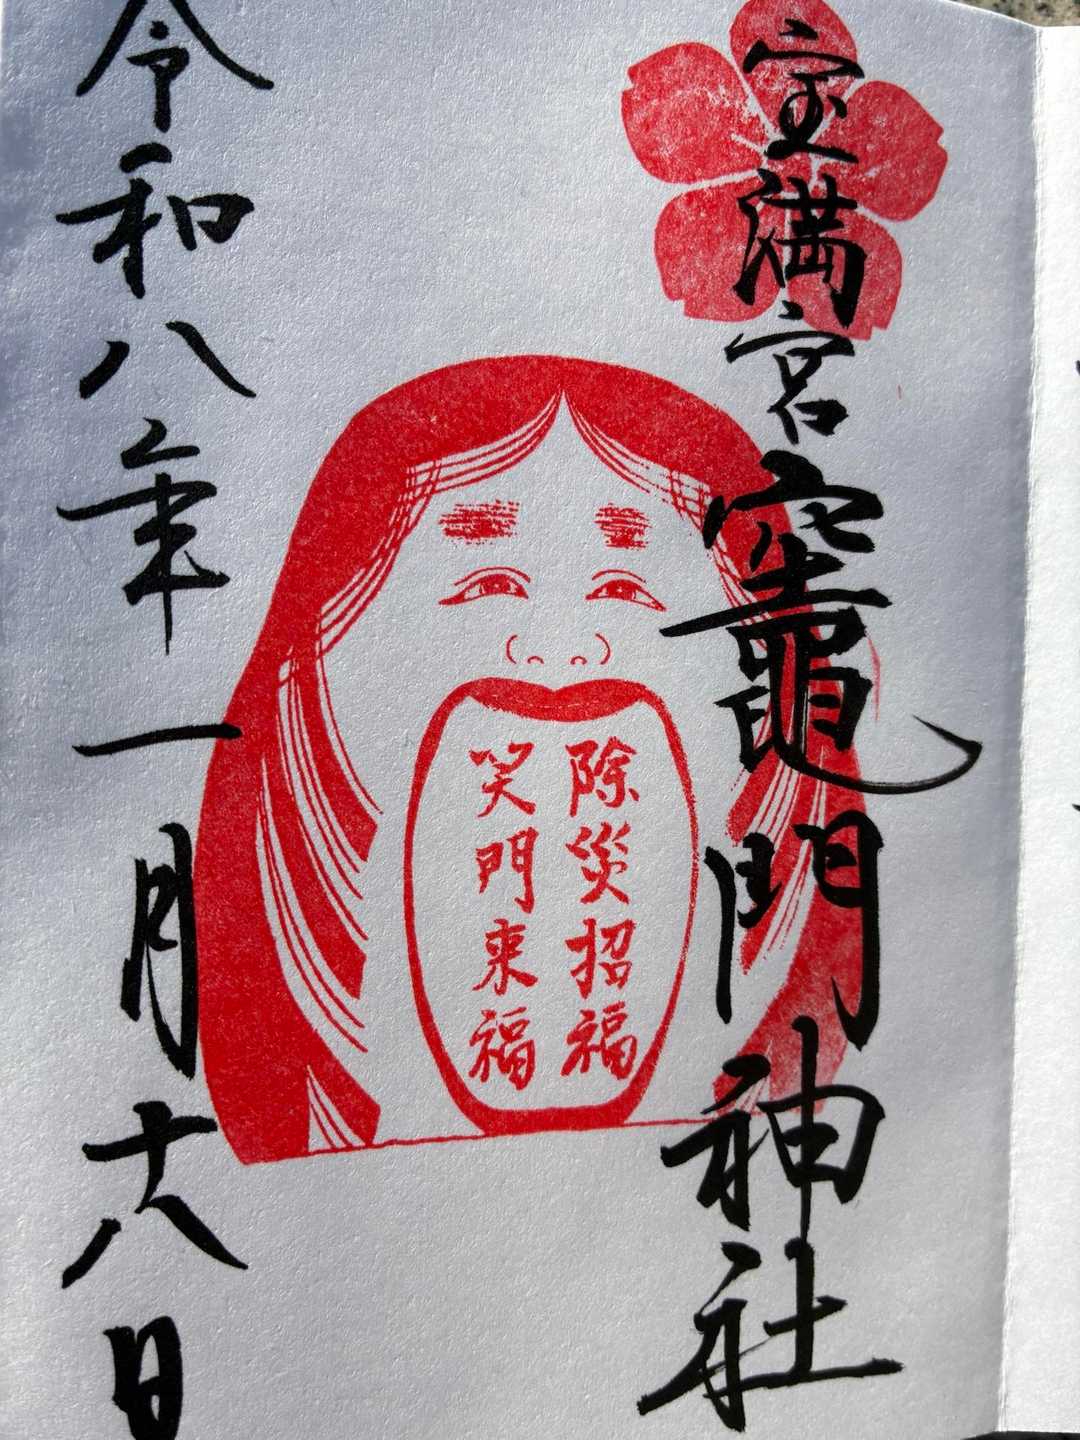 宝満宮竈門神社
除災招福
笑門来福
令和八年一月十八日